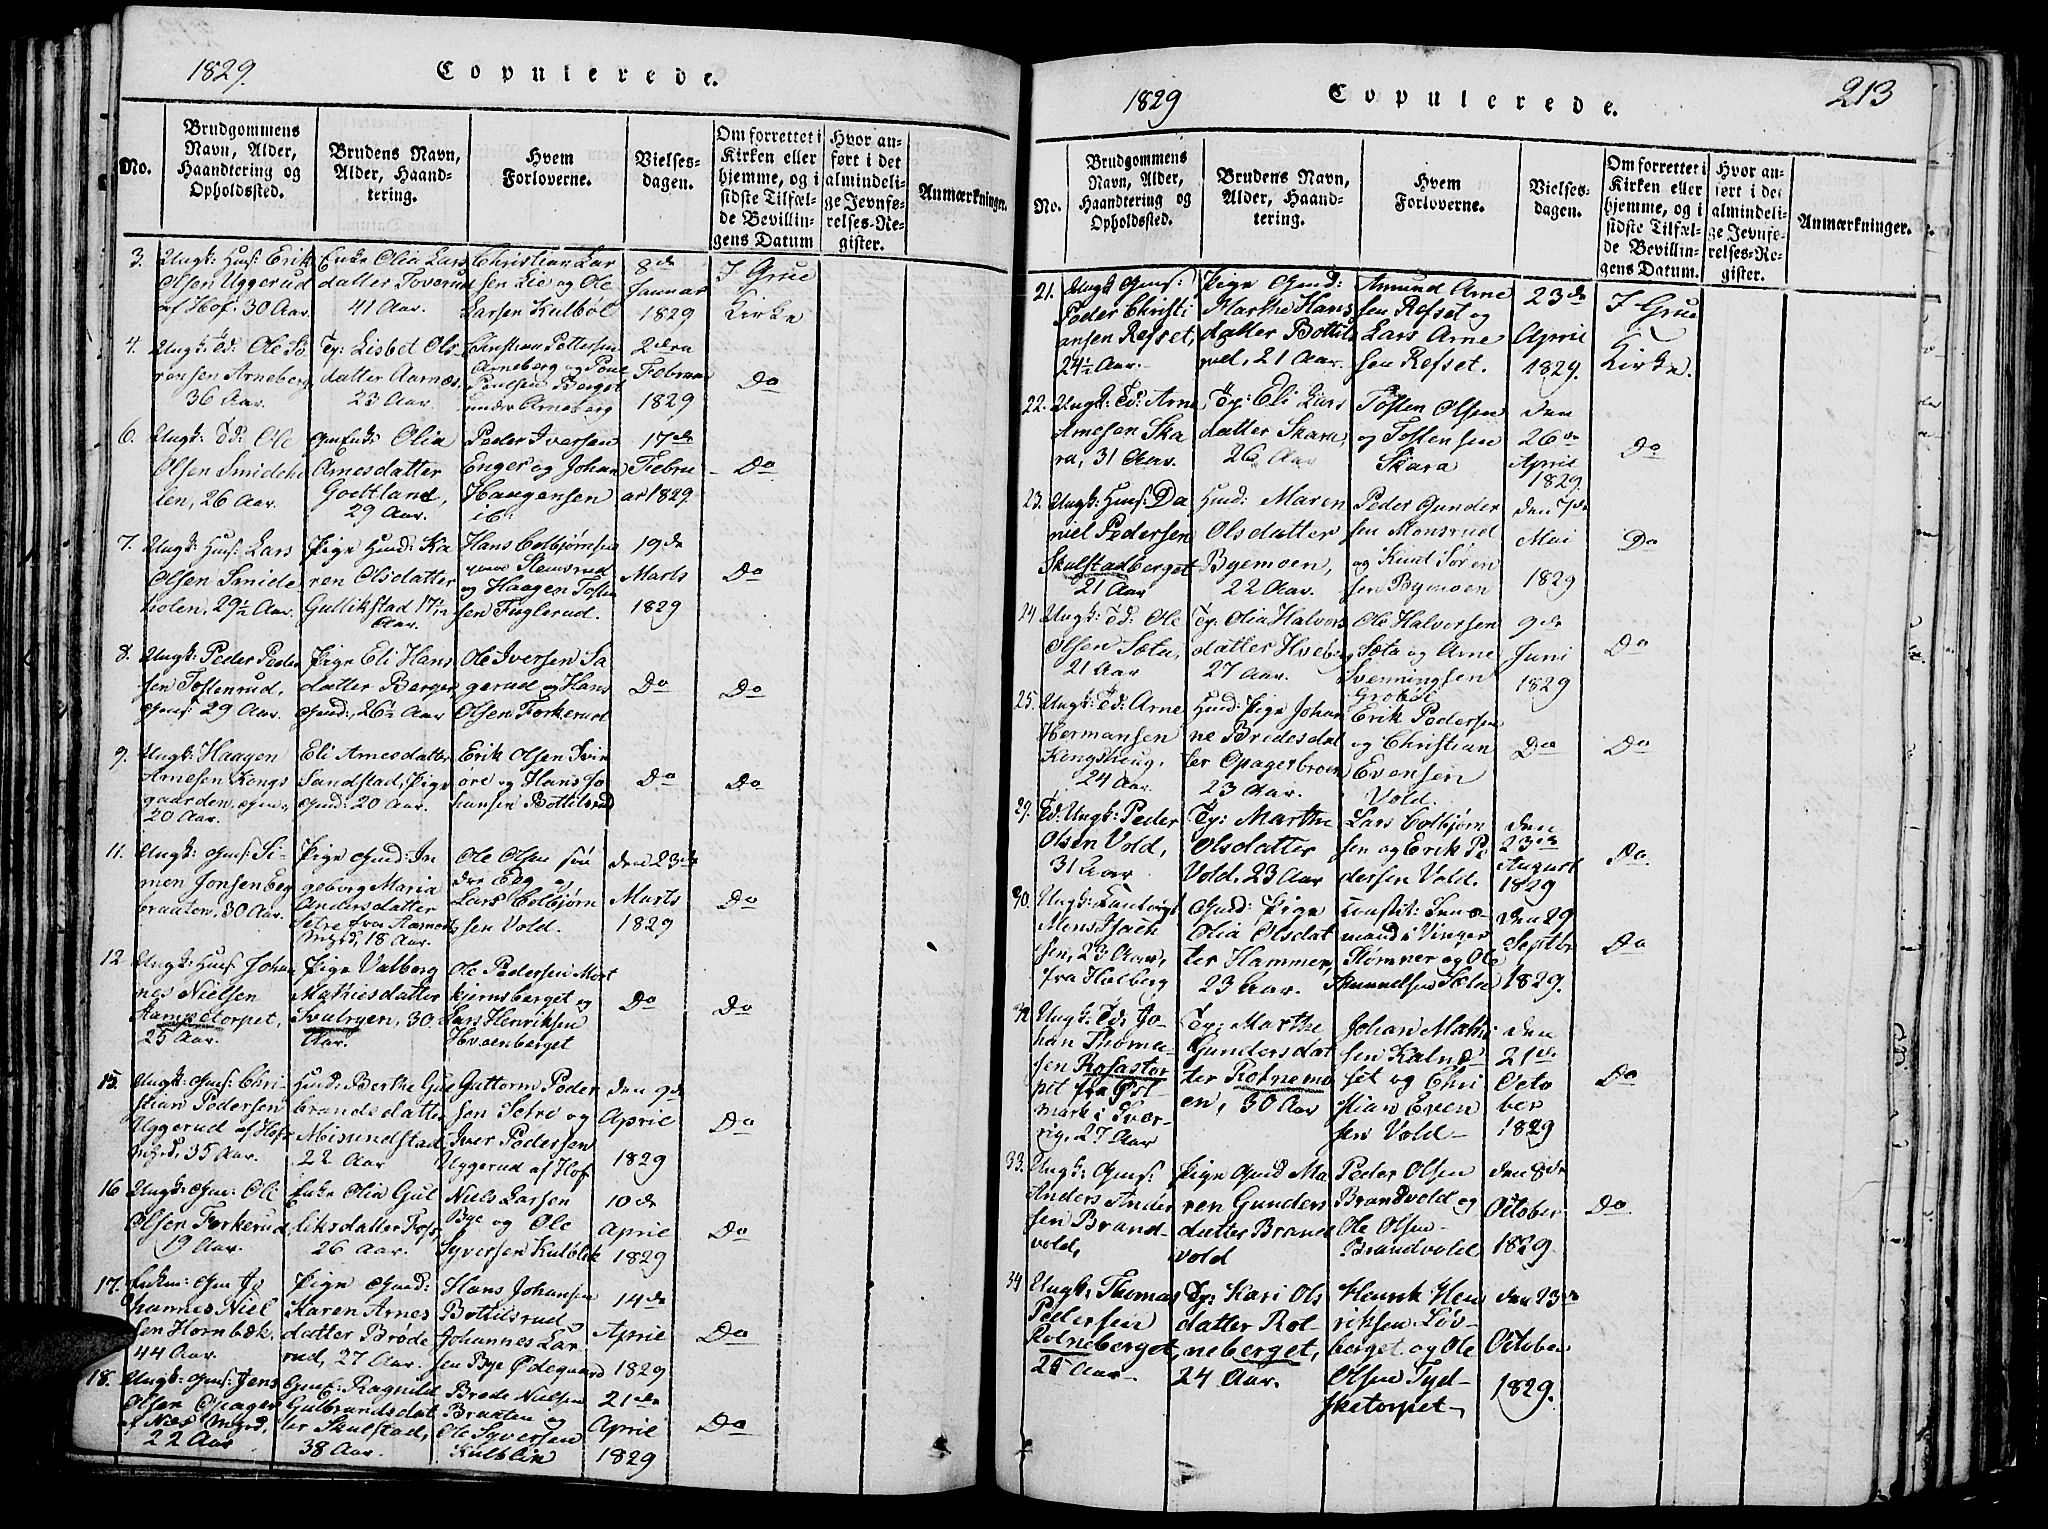 1829. Copulerede.
No.
Brudgommens
Navn, Alder,
Haandtering og
Opholdssted.
Brudens Navn,
Alder, Haand-
tering.
Hvem
Forloverne.
Vielses-
dagen.
Om forrettet i
Kirken eller
hjemme, og i
sidste Tilfæl-
de Bevillin-
gens Datum
Hvor an-
ført i det
almindeli-
ge Jevnfø-
relses-Re-
gister.
Anmærkninger.
3. Ungk: Hus: Erik
Olsen Uggerud
af Hof. 30 Aar.
Enke Olia Lars
datter Toverud
41 Aar.
Christian Lar
sen Lie og Ole
Larsen Kulbøl
8de
Januar
1829
I Grue
Kirke
4. Ungk: Td: Ole Sø
rensen Arneberg
36 Aar.
Tp: Lisbet Ols-
datter Aarnæs
23 Aar.
Christian Pettersen
Arneberg og Poul
Poulsen Berget
under Arneberg
2den
Februar
1829
Do
6. Ungk: Td: Ole
Olsen Smideho
len, 26 Aar.
Olia
Arnesdatter
Godtland,
29 Aar.
Peder Iversen
Enger og Johan
Haagensen
ib:
17de
Febru
ar 1829.
Do
7. Ungk: Hus: Lars
Olsen Smide
holen, 29½ Aar.
Pige Husd: Ka
ren Olsdatter
Gulliksstad 17½
Aar.
Hans Colbjørnsen
Stemsrud
og Haagen Tosten
sen Fuglerud.
19de
Marts
1829
Do
8. Ungk: Peder Peder
sen Tostenrud,
Gms: 29 Aar.
Pige Eli Hans
datter Berger,
Gmd:, 26½ Aar
Ole Iversen Sa
gerud og Hans
Olsen Forkerud
Do
Do
9. Ungk: Haagen
Arnesen Kongs
gaarden,
20 Aar.
Eli Arnesdatter
Sandstad, Pige
Gmd: 20 Aar.
Erik Olsen Svin
øre og Hans Jo
hansen Bottilsrud
Do
Do
11. Ungk: Gms: Si-
men Jonsen Eg
braaten, 30 Aar.
Pige Gmd: In
geborg Maria
Andersdatter
Setre fra Aamods
Mgd, 18 Aar.
Ole Olsen søn
dre Eeg og
Lars Colbjørn
sen Vold.
den 23de
Marts
1829
Do
12. Ungk: Huus: Johan
nes Nielsen
Aampetorpet,
25 Aar.
Pige Valborg
Mathiesdatter
Svulryen, 30
Aar.
Ole Pedersen Mort
kjernsberget og
Lars Henriksen
Hvoenberget
Do
Do
15. Ungk: Gms: Chri-
stian Pedersen
Uggerud af Hofs
Mgd, 35 Aar.
Husd: Berthe Gul
brandsdatter
Misundstad
22 Aar
Guttorm Peder
sen Setre og
Iver Pedersen
Uggerud af Hof
den 9de
April
1829
Do
16 Ungk: Gm: Oli
Olsen Forkerud,
19 Aar.
Enke Olia Gul
liksdatter Foss,
26 Aar.
Niels Larsen
Bye og Ole
Syversen Kulblik
10de
April
1829
Do
17. Enkm: Gm Jo
hannes Niel
sen Hornbæk.
44 Aar.
Pige Gmd:
Karen Arnes
datter Brode
rud, 27 Aar.
Hans Johansen
Bottilsrud
Johannes Lar
sen Bye Ødegaard
14de
April
1829
Do
18. Ungk: Gms: Jens
Olsen Opager
af Næs Mgrd,
22 Aar
Ragnild
Gulbrandsdat
ter Skulstad,
38 Aar.
Brede Nielsen
Braaten og
Ole Syversen
Kulblik
21de
April
1829
Do
1829 Copulerede. 213
No.
Brudgommens
Navn, Alder,
Haandtering og
Opholdssted.
Brudens Navn,
Alder, Haand-
tering.
Hvem
Forloverne.
Vielses-
dagen.
Om forrettet i
Kirken eller
hjemme, og i
sidste Tilfæl-
de Bevillin-
gens Datum.
Hvor an-
ført i det
almindeli-
ge Jevnfø-
relses-Re-
gister.
Anmærkninger.
21. Ungk: Gms:
Peder Christi
ansen Refset,
24½ Aar.
Pige Gmd:
Marthe Hans
datter Bottils
rud, 21 Aar.
Amund Arne
sen Refset og
Lars Arne
sen Refset.
23de
April
1829.
I Grue
Kirke.
22. Ungk: Td: Arne
Arnesen Ska
ra, 31 Aar.
Tp: Eli Lars
datter Skara,
26 Aar
Tosten Olsen
og Tostensen
Skara
den
26de
April
1829.
Do
23. Ungk: Huus: Da
niel Pedersen
Skulstadberget
21 Aar
Husd: Maren
Olsdatter
Byemoen,
22 Aar.
Peder Gunder
sen Monsrud
og Knud Søren
sen Bymoen
den 7de
Mai
1829
Do
24 Ungk: Td: Ole
Olsen Sæta,
21 Aar
Tp: Olia Halvors
datter Hveberg
27 Aar.
Ole Halvorsen
Sæta og Arne
Svenningsen
Grobøl
9de
Juni
1829
Do
25. Ungk: Td: Arne
Hermansen
Kongshaug,
24 Aar.
Husd: Pige Johan
ne Bredesdat
ter Opagerbroen
23 Aar.
Erik Pedersen
og Christian
Evensen
Vold.
Do
Do
29. Td: Ungk: Peder
Olsen Vold,
31 Aar
Tp: Marthe
Olsdatter
Vold. 23 Aar
Lars Colbjørn
sen og Erik Pe
dersen Vold.
den
23de
August
1829
Do.
30. Ungk:
Mons Isach
sen, 23 Aar,
fra Holberg
Gmd: Pige
Olia Olsdat
ter Hammer,
23 Aar.
Constit: Lens-
mand i Vinger
Stømner og Ole
Amundsen Sæter
den 29
Septbr
1829.
Do
32 Ungk: Td: Jo-
han Thoma-
sen Rofastor
pet fra Øst
mark i Sver-
rig, 27 Aar
Tp: Marthe
Gundersdat
ter Rotnemo
en, 30 Aar
Johan Mathi
sen Kalnæ
set og Chri
stian Even
sen Vold-
den
21de
Octo
ber
1829
Do
33. Ungk: Gms:
Anders Ander
sen Brand-
vold,
Pige Gmd Ma
ren Gunders
datter Brand
vold
Peder Olsen
Brandvold og
Ole Olsen
Brandvold
den 8de
October
1829.
Do
34 Ungk: Thomas
Pedersen
Rotneberget,
25 Aar.
Tp: Kari Ols
datter Rot-
neberget,
24 Aar.
Henrik Hen
riksen Løv-
berget og Ole
Olsen Tyd-
sketorpet
den 23de
October
1829.